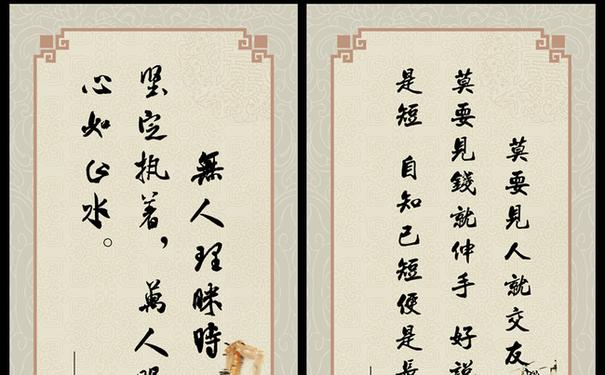 無人理睬時
坚定执着，萬人
心如止水。
莫要見人就交友
莫要見錢就伸手 好説
是短 自知己短便是長